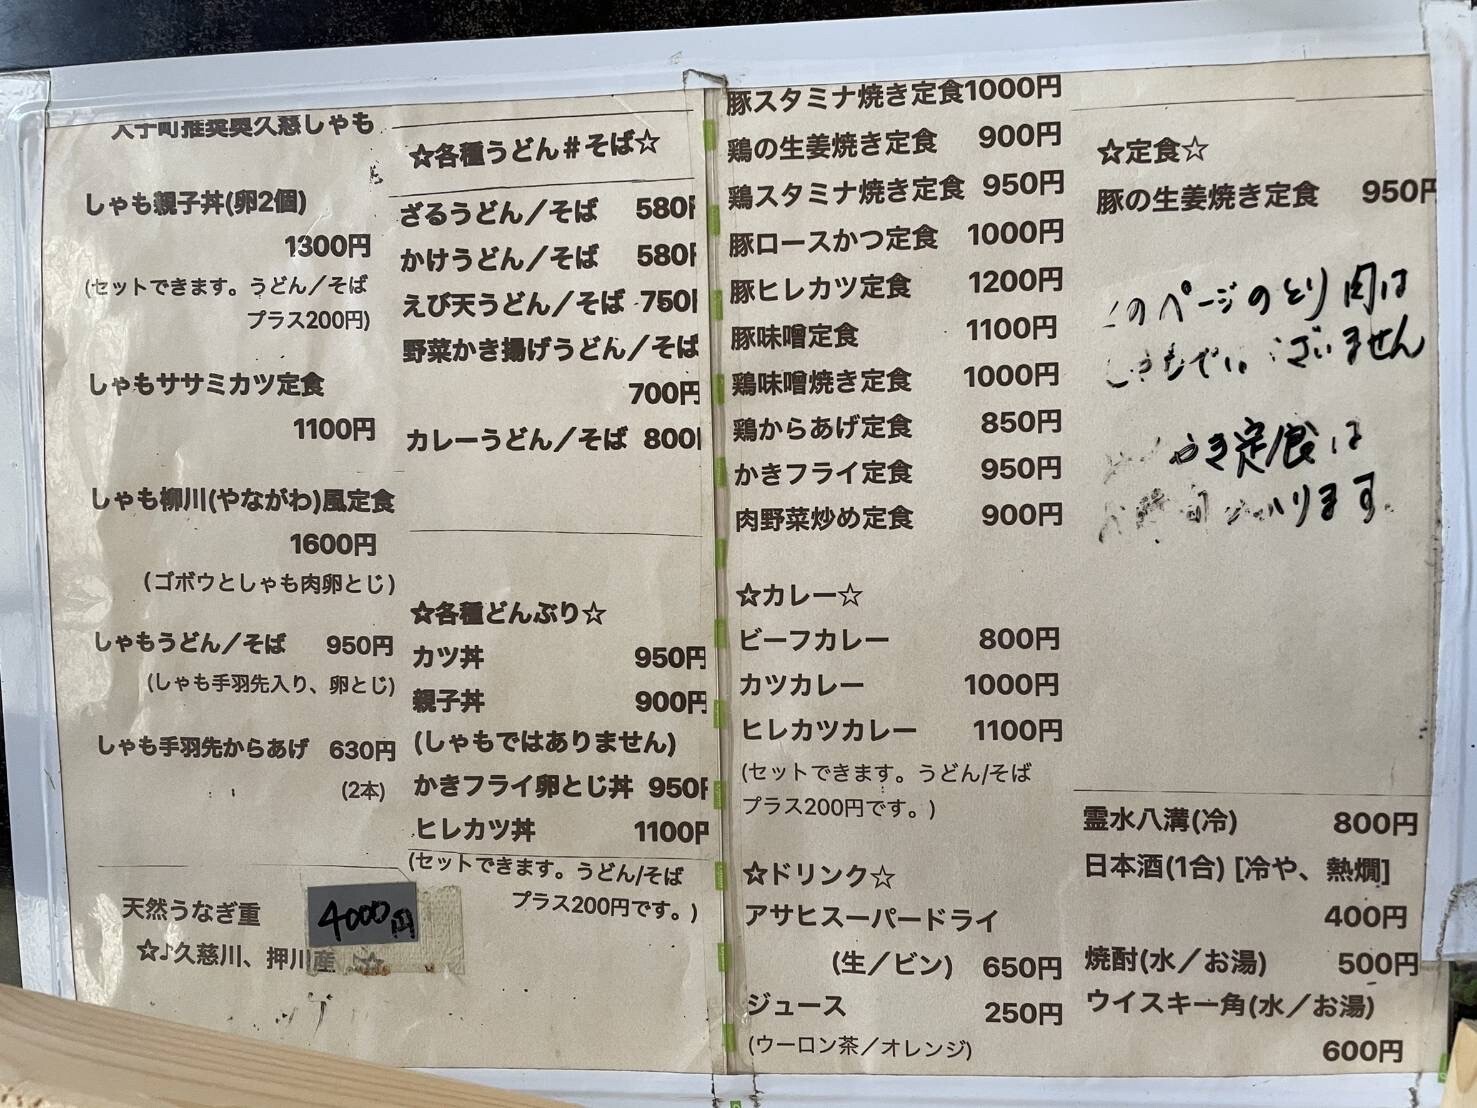 大子町推奨奥久慈しゃも
しゃも親子丼(卵2個)
1300円
(セットできます。うどん／そば
プラス200円)
しゃもササミカツ定食
1100円
しゃも柳川(やながわ)風定食
1600円
(ゴボウとしゃも肉卵とじ)
しゃもうどん／そば 950円
(しゃも手羽先入り、卵とじ)
しゃも手羽先からあげ 630円
(2本)
天然うなぎ重 4000円
☆♪久慈川、押川産 ☆
☆各種うどん＃そば☆
ざるうどん／そば 580円
かけうどん／そば 580円
えび天うどん／そば 750円
野菜かき揚げうどん／そば
700円
カレーうどん／そば 800円
☆各種どんぶり☆
カツ丼 950円
親子丼 900円
(しゃもではありません)
かきフライ卵とじ丼 950円
ヒレカツ丼 1100円
(セットできます。うどん/そば
プラス200円です。)
豚スタミナ焼き定食1000円
鶏の生姜焼き定食 900円
鶏スタミナ焼き定食 950円
豚ロースかつ定食 1000円
豚ヒレカツ定食 1200円
豚味噌定食 1100円
鶏味噌焼き定食 1000円
鶏からあげ定食 850円
かきフライ定食 950円
肉野菜炒め定食 900円
☆カレー☆
ビーフカレー 800円
カツカレー 1000円
ヒレカツカレー 1100円
(セットできます。うどん/そば
プラス200円です。)
☆ドリンク☆
アサヒスーパードライ
(生／ビン) 650円
ジュース 250円
(ウーロン茶／オレンジ)
☆定食☆
豚の生姜焼き定食 950円
このページのとり肉は
しゃもではございません
やき定食は
いります。
霊水八溝(冷) 800円
日本酒(1合) [冷や、熱燗]
400円
焼酎(水／お湯) 500円
ウイスキー角(水／お湯)
600円